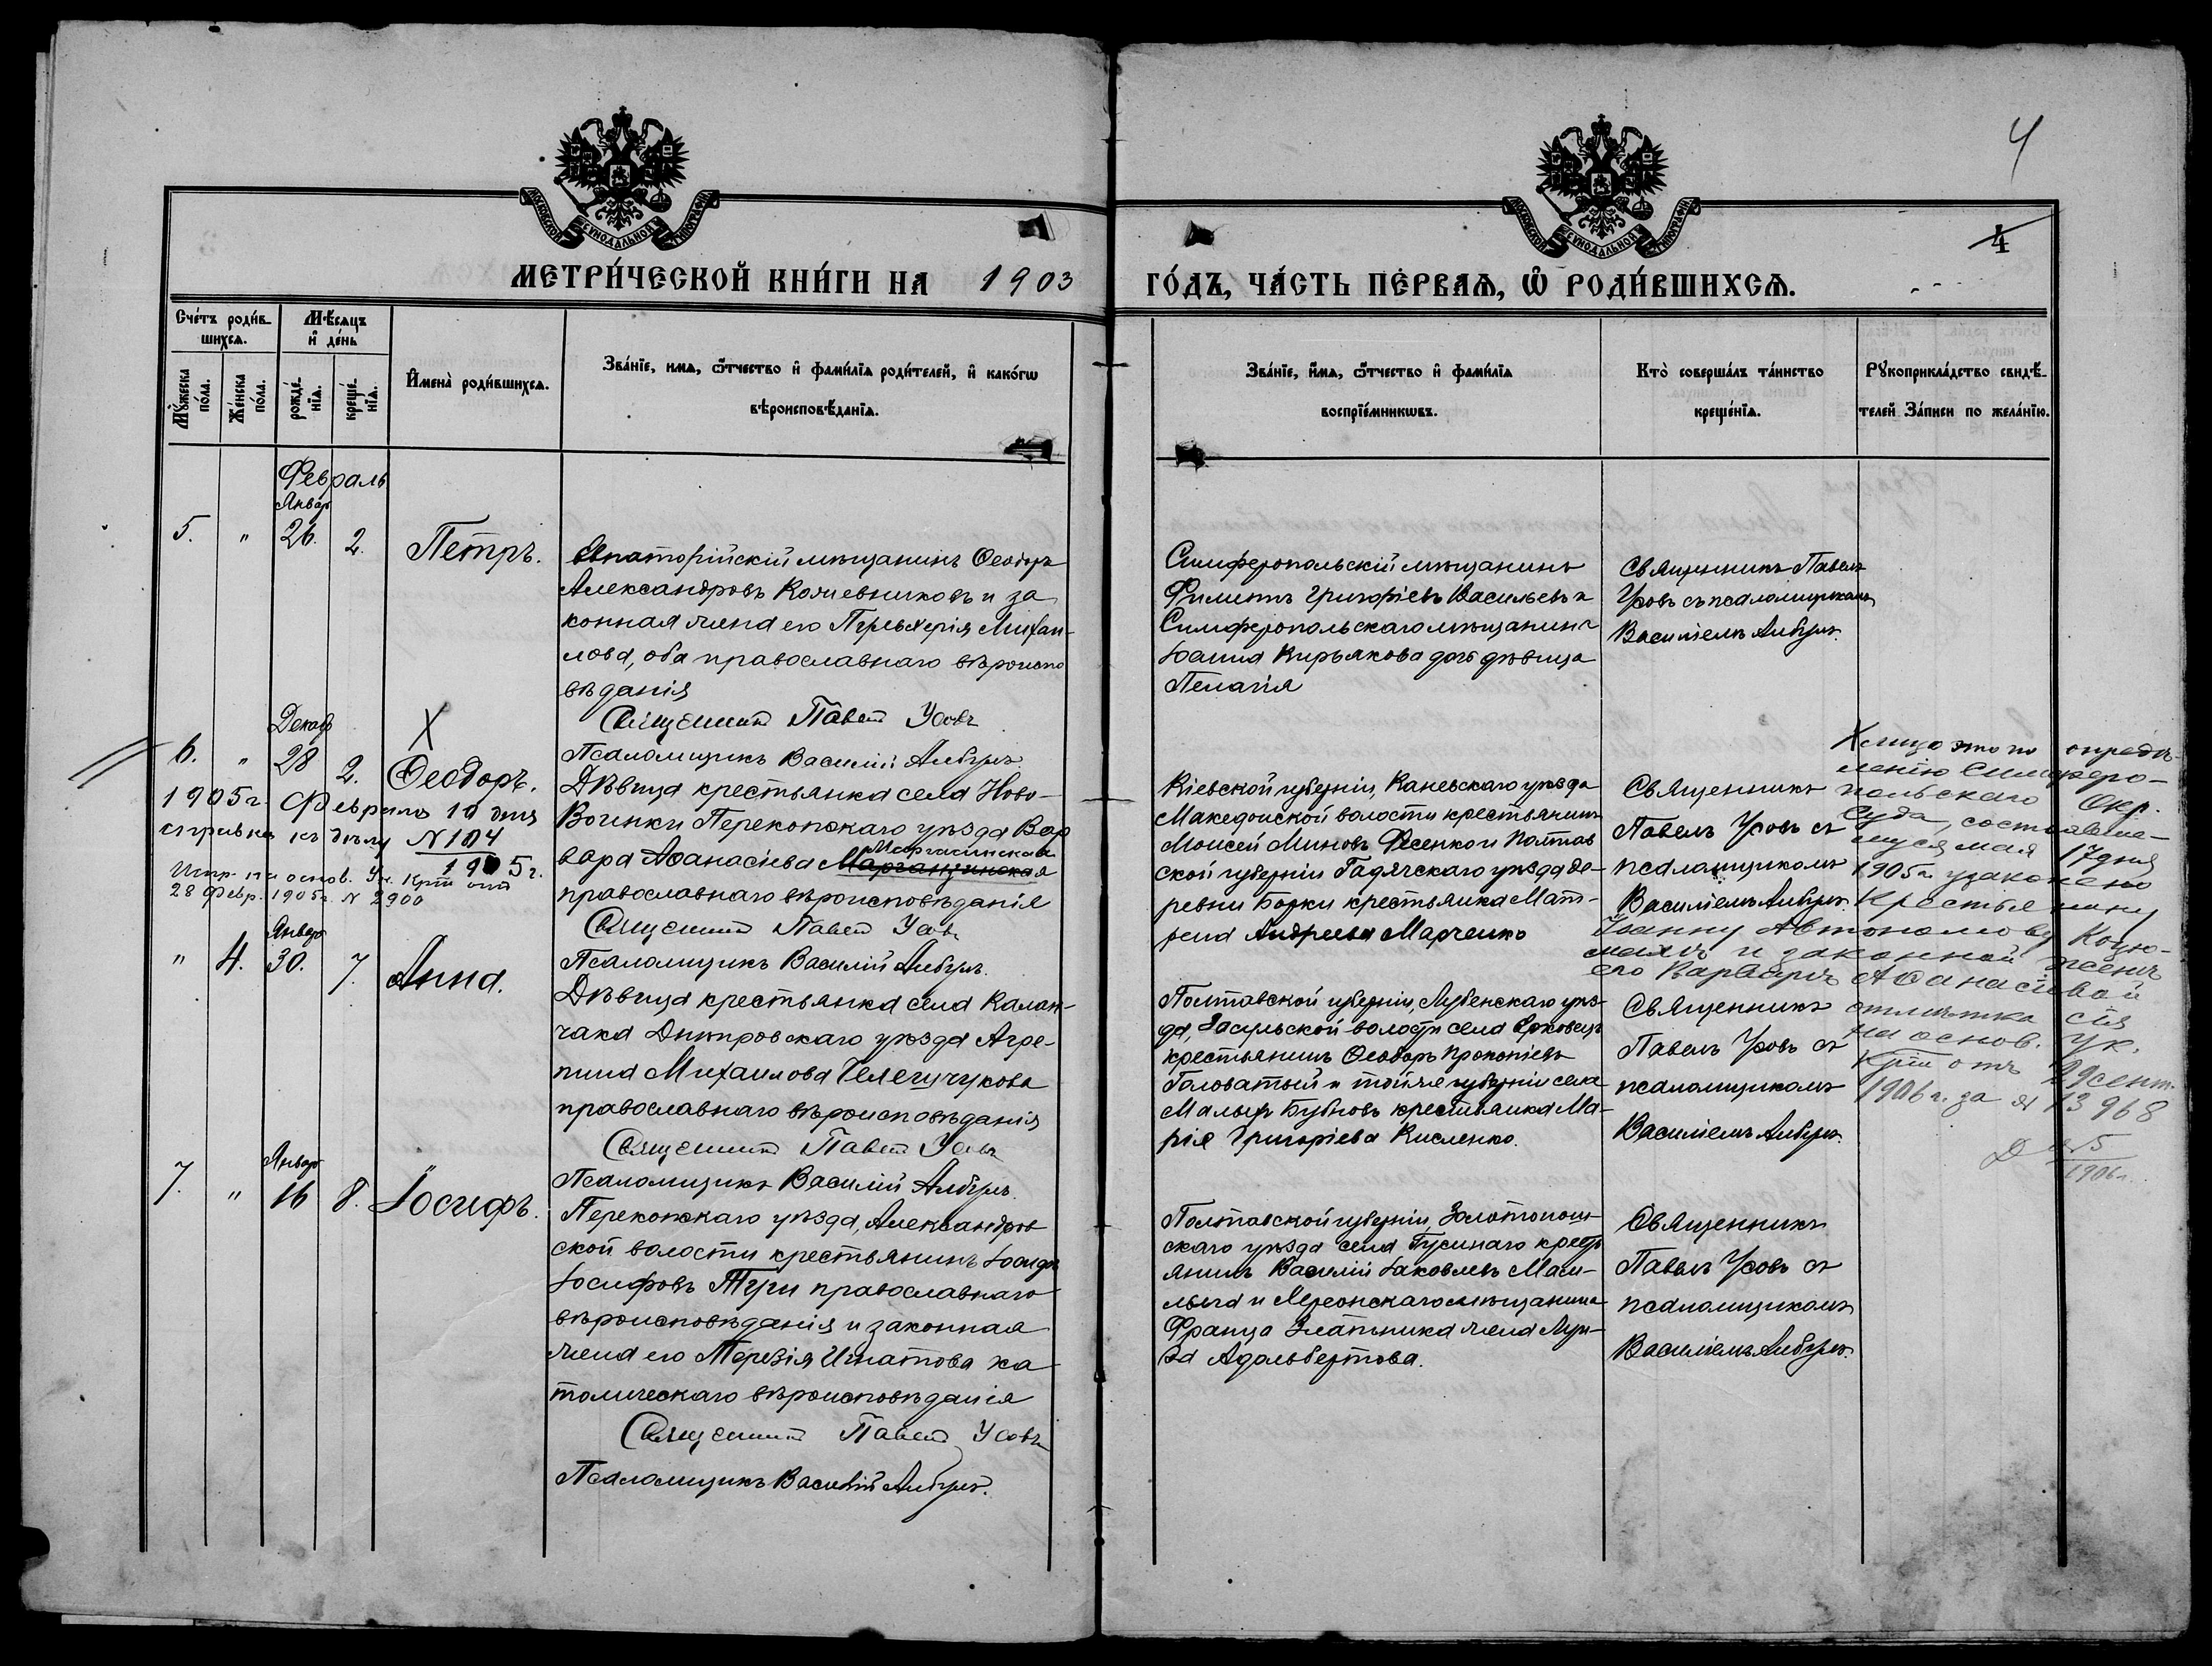 4
МОСКОВСКОЙ СѴНОДАЛЬНОЙ ТИПОГРАФІИ
МОСКОВСКОЙ СѴНОДАЛЬНОЙ ТИПОГРАФІИ
4
МЕТРИ́ЧЕСКОЙ КНИ́ГИ НА 1903
ГО́ДЪ, ЧА́СТЬ ПЕ́РВАѦ, Ѽ РОДИ́ВШИХСѦ.
Сче́тъ роди́в-
шихсѧ.
Мѣ́сѧцъ
и҆ де́нь
Мꙋ́жеска
по́ла.
Же́нска
по́ла.
рожде́-
нїѧ.
креще́-
нїѧ.
И҆мена̀ роди́вшихсѧ.
Зва́нїе, имѧ, ѻ҆́тчество и҆ фами́лїѧ роди́телей, и҆ како́гѡ
вѣроисповѣ́данїѧ.
Зва́нїе, и҆́мѧ, ѻ҆́тчество и҆ фами́лїѧ
воспрїе́мникѡвъ.
Кто̀ соверша́лъ та́инство
креще́нїѧ.
Рꙋкоприкла́дство свидѣ́-
телей за́писи по жела́нїю.
Февраль
Январ
5. " 26. 2. Петръ.
Евпаторійскій мѣщанинъ Ѳеодоръ
Александровъ Кожевниковъ и за
конная жена его Пульхерія Михаи-
лова, оба православнаго вѣроиспо
вѣданія
Священникъ Павелъ Усовъ
Псаломщикъ Василій
Симферопольскій мѣщанинъ
Филиппъ Григоріевъ Васильевъ и
Симферопольскаго мѣщанина
Іоанна Кирьякова дочь дѣвица
Пелагія
Священникъ Павелъ
Усовъ съ псаломщикомъ
Василіемъ
Декаб
X
6. " 28 2. Ѳеодоръ.
1905 г. Февраля 10 дня
справка къ дѣлу N 104
1905 г.
Испр. на основ. Ук. Крт отъ
28 Февр. 1905 г. N 2900
Дѣвица крестьянка села Ново-
Воинки Перекопскаго уѣзда Вар
вара Аѳанасіева
православнаго вѣроисповѣданія
Священникъ Павелъ Усовъ
Псаломщикъ Василій
Кіевской губерніи, Каневскаго уѣзда
Македонской волости крестьянинъ
Моисей Миновъ Фесенко и Полтав
ской губерніи Гадячскаго уѣзда де-
ревни Борки крестьянка Мат-
рена Андреева Марченко
Священникъ
Павелъ Усовъ съ
псаломщикомъ
Василіемъ
X лицо это по опредѣ-
ленію Симферо-
польскаго Окр.
Суда, состоявше-
муся мая 17 дня
1905 г. узаконено
крестьянину
Іоанну Автономову
и законной женѣ
его Варварѣ Аѳанасіевой
отмѣтка сія
на основ. Ук.
Крт отъ 29 сент.
1906 г. за N 13968
Д N 5
1906 г.
Январ
" 4. 30. 7. Анна.
Дѣвица крестьянка села Калан-
чака Днѣпровскаго уѣзда Агре-
пина Михаилова
православнаго вѣроисповѣданія
Священникъ Павелъ Усовъ
Псаломщикъ Василій
Полтавской губерніи, Лубенскаго уѣз-
да, Засульской волости села
крестьянинъ Ѳеодоръ Прокопіевъ
Головатый и той же губерніи села
Малыхъ Бубновъ крестьянка Ма-
рія Григоріева Кисленко.
Священникъ
Павелъ Усовъ съ
псаломщикомъ
Василіемъ
Январ
7. " 16 8. Іосифъ.
Перекопскаго уѣзда, Александров
ской волости крестьянинъ Іосифъ
Іосифовъ православнаго
вѣроисповѣданія и законная
жена его Терезія Игнатова ка
толическаго вѣроисповѣданія
Священникъ Павелъ Усовъ
Псаломщикъ Василій
Полтавской губерніи, Золотонош-
скаго уѣзда села Гусинаго крест
янинъ Василій Іаковлевъ
и мѣщанина
Франца Златника жена Луи-
за Адольбертова.
Священникъ
Павелъ Усовъ съ
псаломщикомъ
Василіемъ